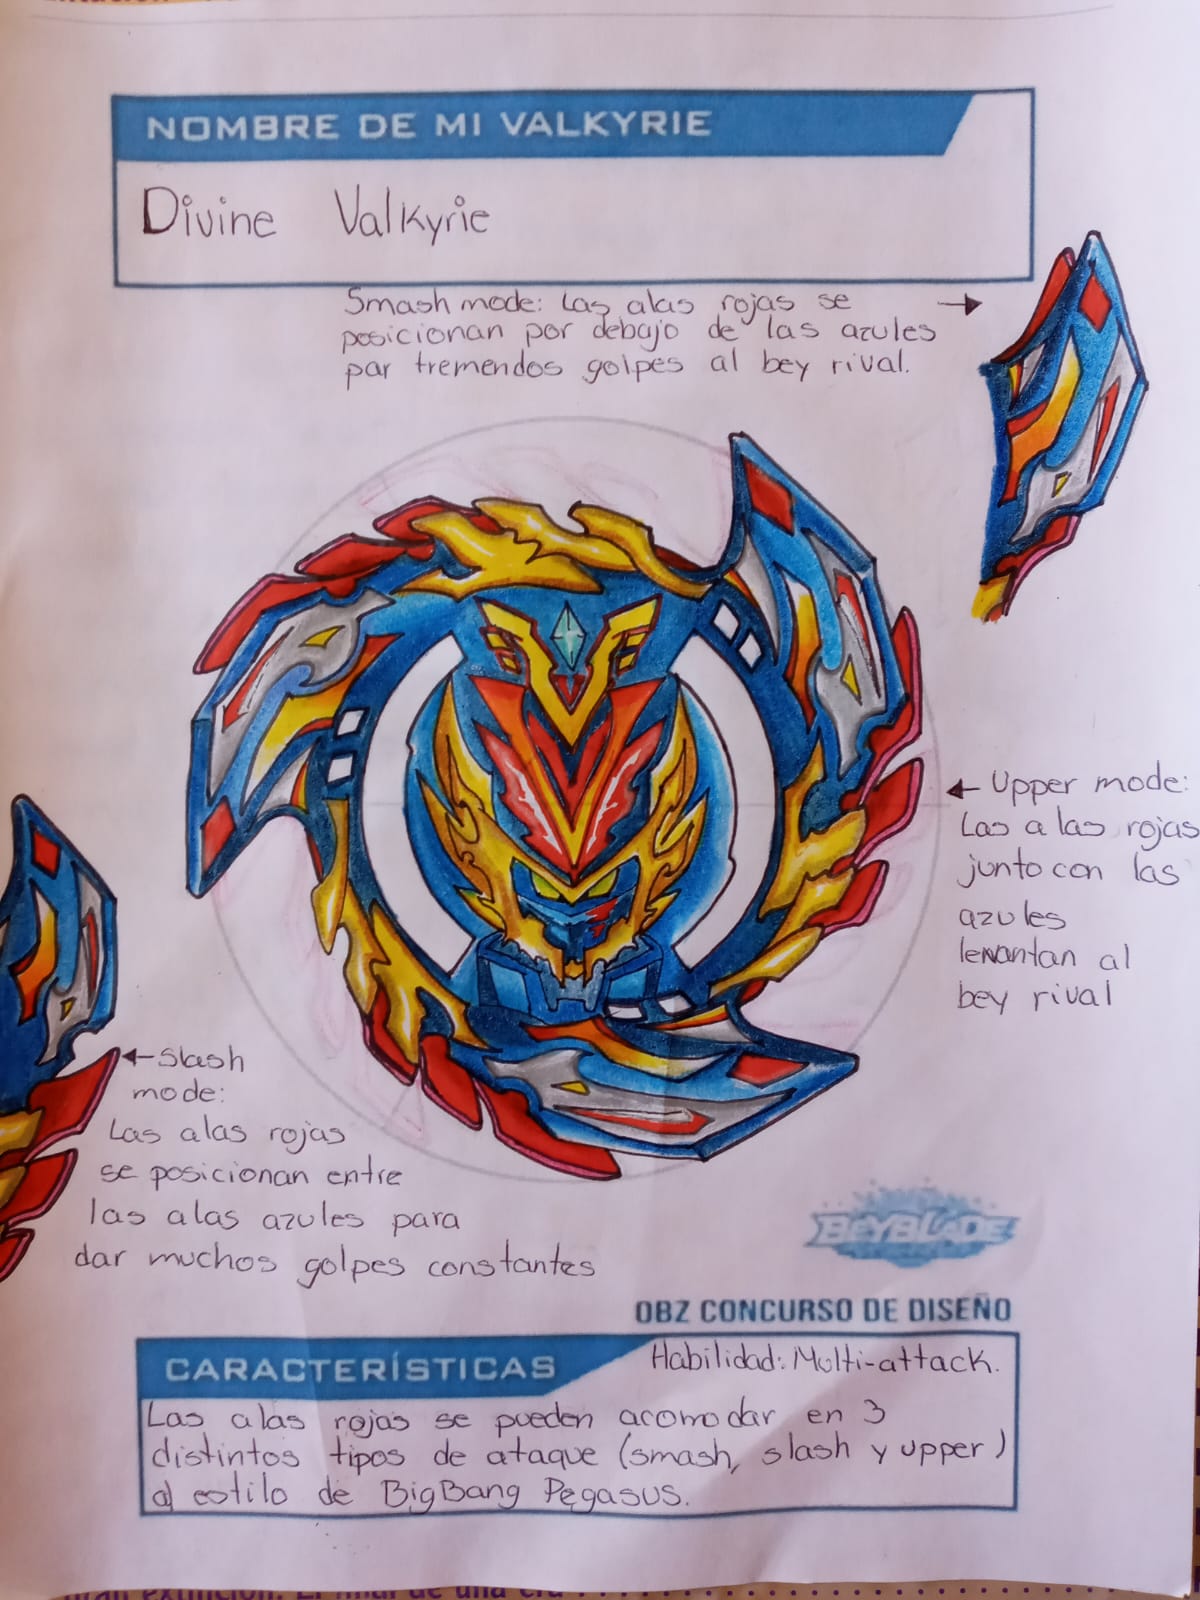 NOMBRE DE MI VALKYRIE
Divine Valkyrie
Smash mode: Las alas rojas se
posicionan por debajo de las azules
par tremendos golpes al bey rival.
← Upper mode:
Las alas rojas
junto con las
azules
levantan al
bey rival
←Slash
mode:
Las alas rojas
se posicionan entre
las alas azules para
dar muchos golpes constantes
BEYBLADE
OBZ CONCURSO DE DISEÑO
CARACTERÍSTICAS
Habilidad: Multi-attack.
Las alas rojas se pueden acomodar en 3
distintos tipos de ataque (smash, slash y upper)
al estilo de BigBang Pegasus.
final de una era